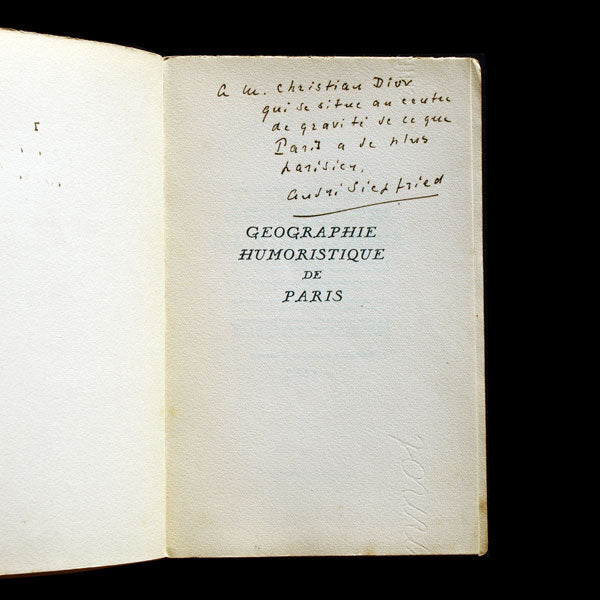 A M. Christian Dior
qui se situe au centre
de gravité de ce que
Paris a de plus
parisien,
André Siegfried
GEOGRAPHIE
HUMORISTIQUE
DE
PARIS